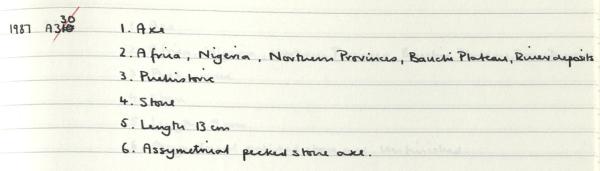 1987 A330 1. Axe
2. Africa, Nigeria, Northern Provinces, Bauchi Plateau, River deposits
3. Prehistoric
4. Stone
5. Length 13 cm
6. Assymetrical pecked stone axe.